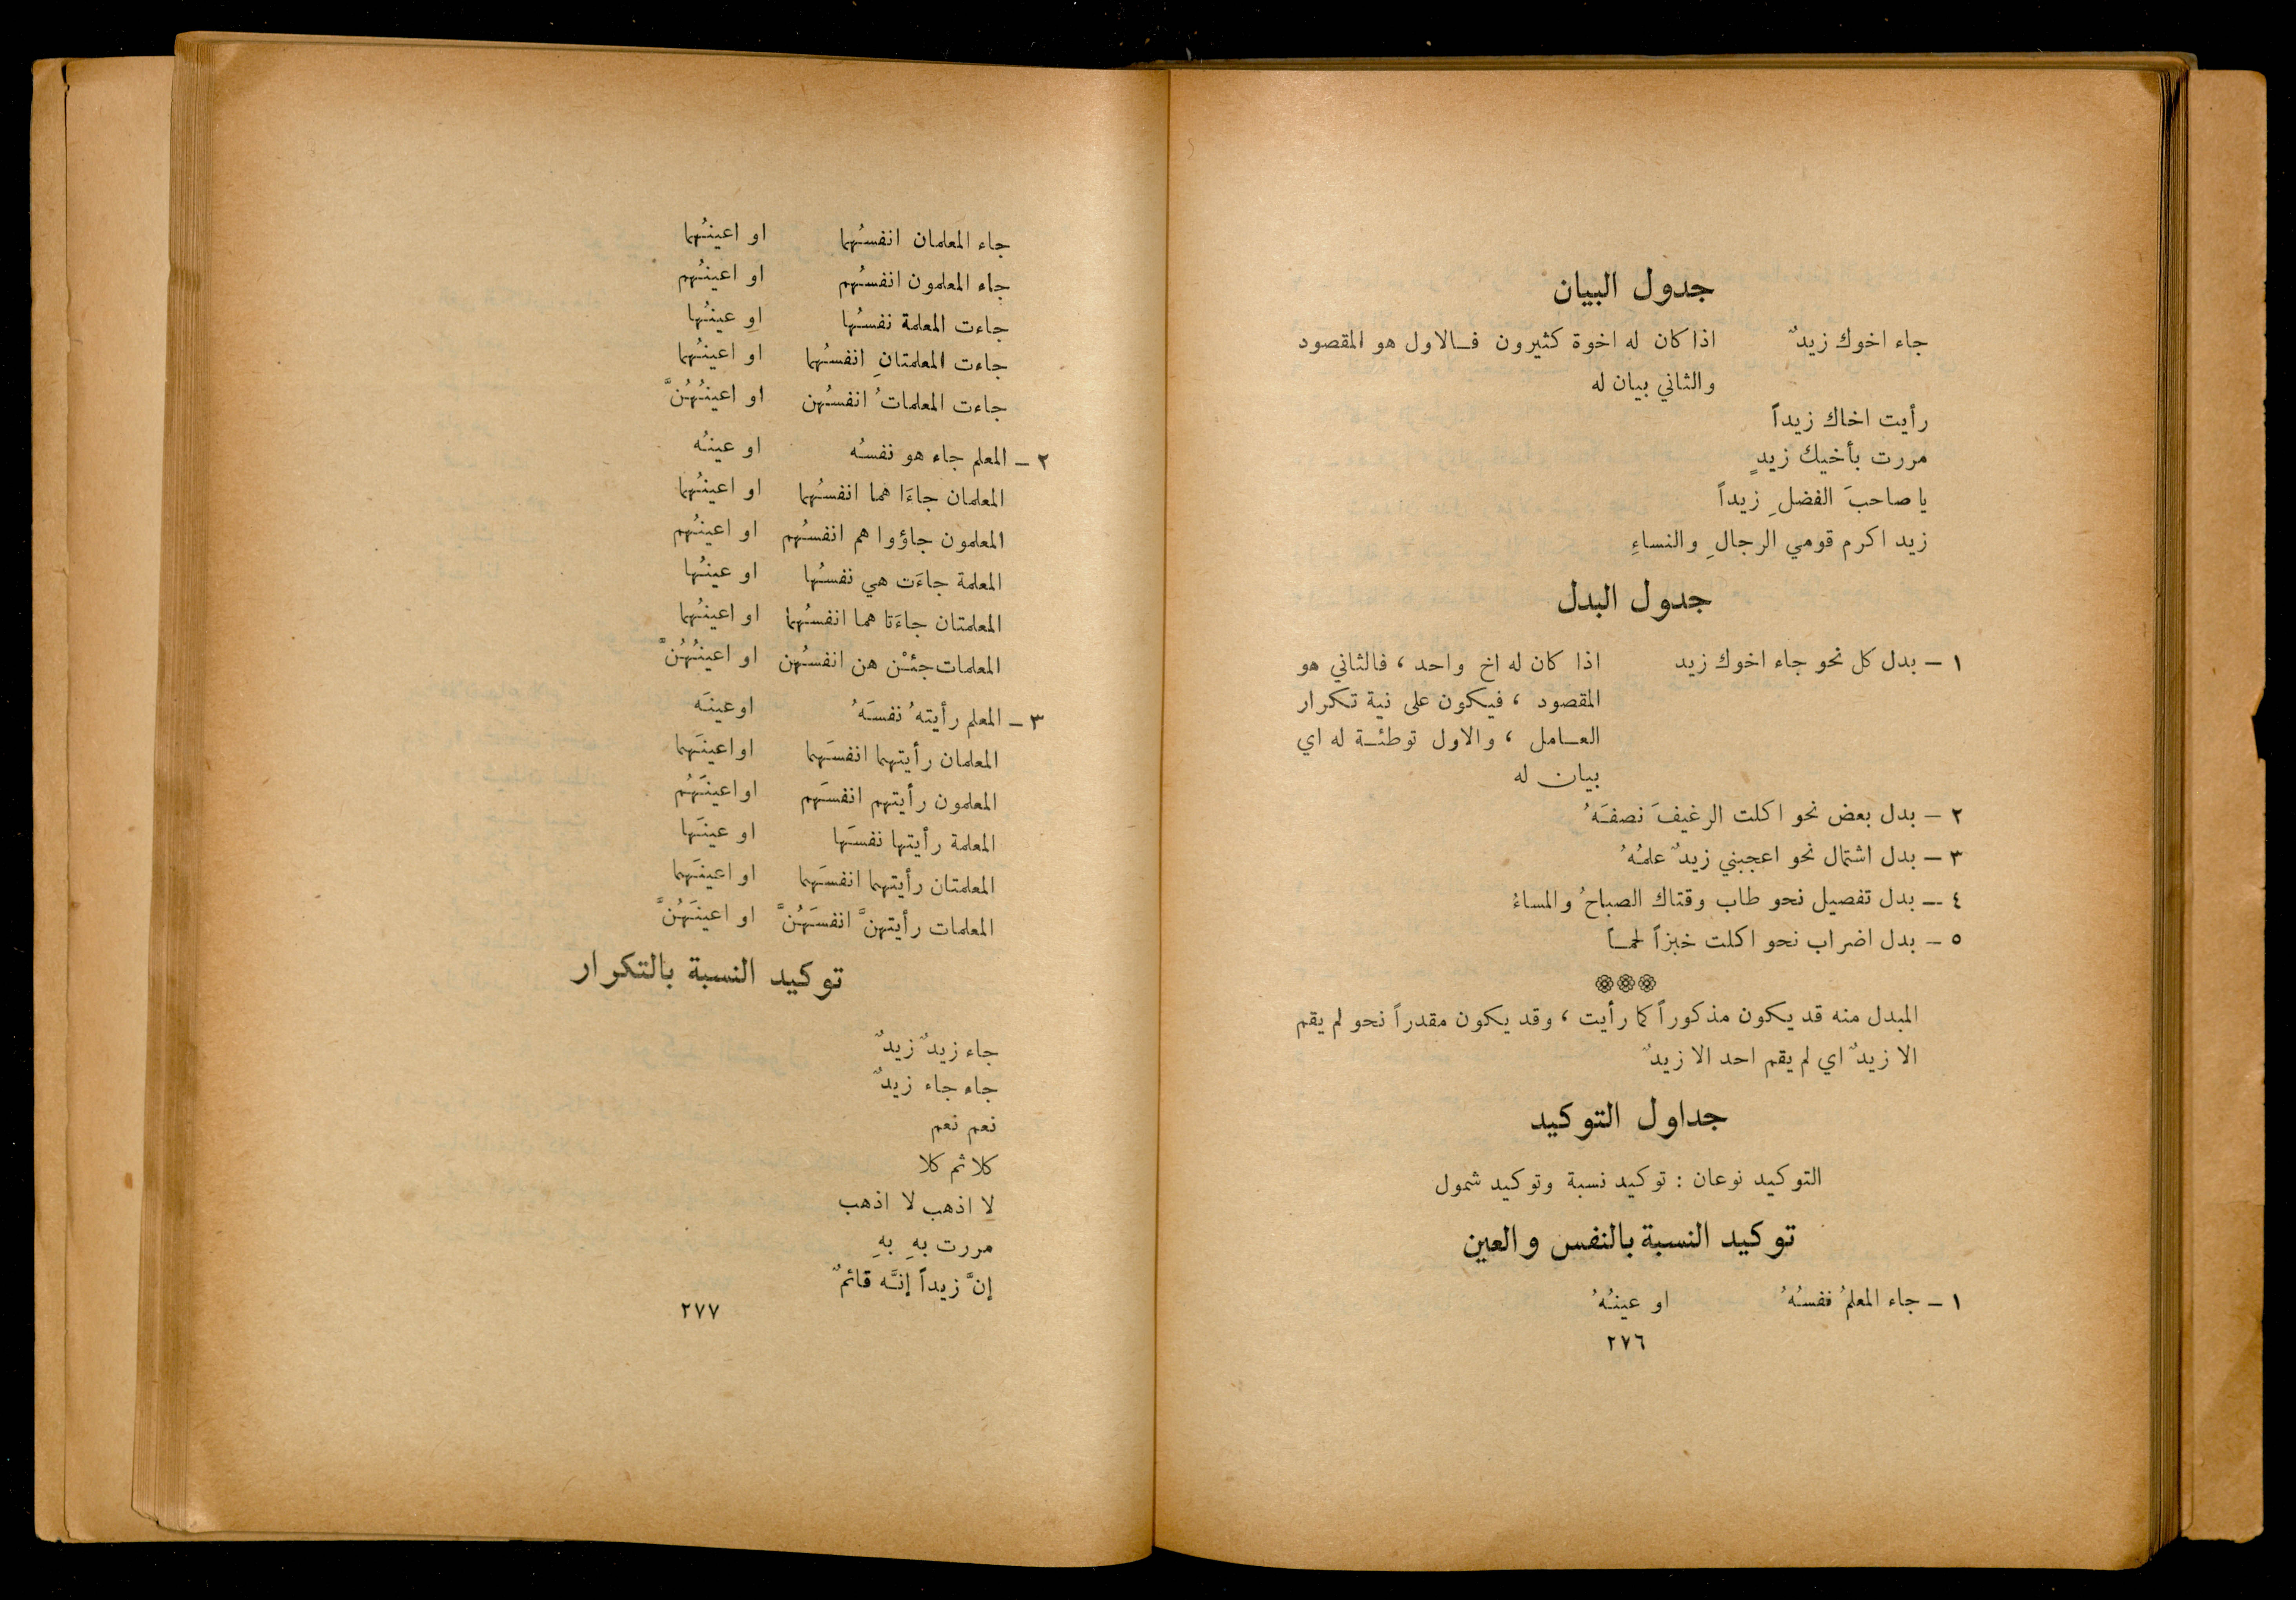 جدول البيان
جاء اخوك زيدٌ اذا كان له اخوة كثيرون فـالاول هو المقصود
والثاني بيان له
رأيت اخاك زيداً
مررت بأخيك زيدٍ
يا صاحبَ الفضلِ زيداً
زيد اكرم قومي الرجالِ والنساءِ
جدول البدل
١ – بدل كل نحو جاء اخوك زيد اذا كان له اخ واحد ، فالثاني هو
المقصود ، فيكون على نية تكرار
العـامل ، والاول توطئـة له اي
بيان له
٢ – بدل بعض نحو اكلت الرغيفَ نصفَهُ
٣ – بدل اشتمال نحو اعجبني زيدٌ علمُهُ
٤ – بدل تفصيل نحو طاب وقتاك الصباحُ والمساءُ
٥ – بدل اضراب نحو اكلت خبزاً لحمـاً
المبدل منه قد يكون مذكوراً كما رأيت ، وقد يكون مقدراً نحو لم يقم
الا زيدٌ اي لم يقم احد الا زيدٌ
جداول التوكيد
التوكيد نوعان : توكيد نسبة وتوكيد شمول
توكيد النسبة بالنفس والعين
١ – جاء المعلمُ نفسُهُ او عينُهُ
٢٧٦
جاء المعلمان انفسُهما او اعينُهما
جاء المعلمون انفسُهم او اعينُهم
جاءت المعلمة نفسُها او عينُها
جاءت المعلمتانِ انفسُهما او اعينُهما
جاءت المعلماتُ انفسُهن او اعينُهُنَّ
٢ – المعلم جاء هو نفسُه او عينُه
المعلمان جاءَا هما انفسُهما او اعينُهما
المعلمون جاؤوا هم انفسُهم او اعينُهم
المعلمة جاءَت هي نفسُها او عينُها
المعلمتان جاءَتا هما انفسُهما او اعينُهما
المعلمات جئْن هن انفسُهن او اعينُهُنَّ
٣ – المعلم رأيتهُ نفسَهُ اوعينَه
المعلمان رأيتهما انفسَهما او اعينَهما
المعلمون رأيتهم انفسَهم او اعينَهُم
المعلمة رأيتها نفسَها او عينَها
المعلمتان رأيتهما انفسَهما او اعينَهما
المعلمات رأيتهنَّ انفسَهُنَّ او اعينَهُنَّ
توكيد النسبة بالتكرار
جاء زيدٌ زيدٌ
جاء جاء زيدٌ
نعم نعم
كلا ثم كلا
لا اذهب لا اذهب
مررت بهِ بهِ
إنَّ زيداً إنَّه قائمٌ
٢٧٧